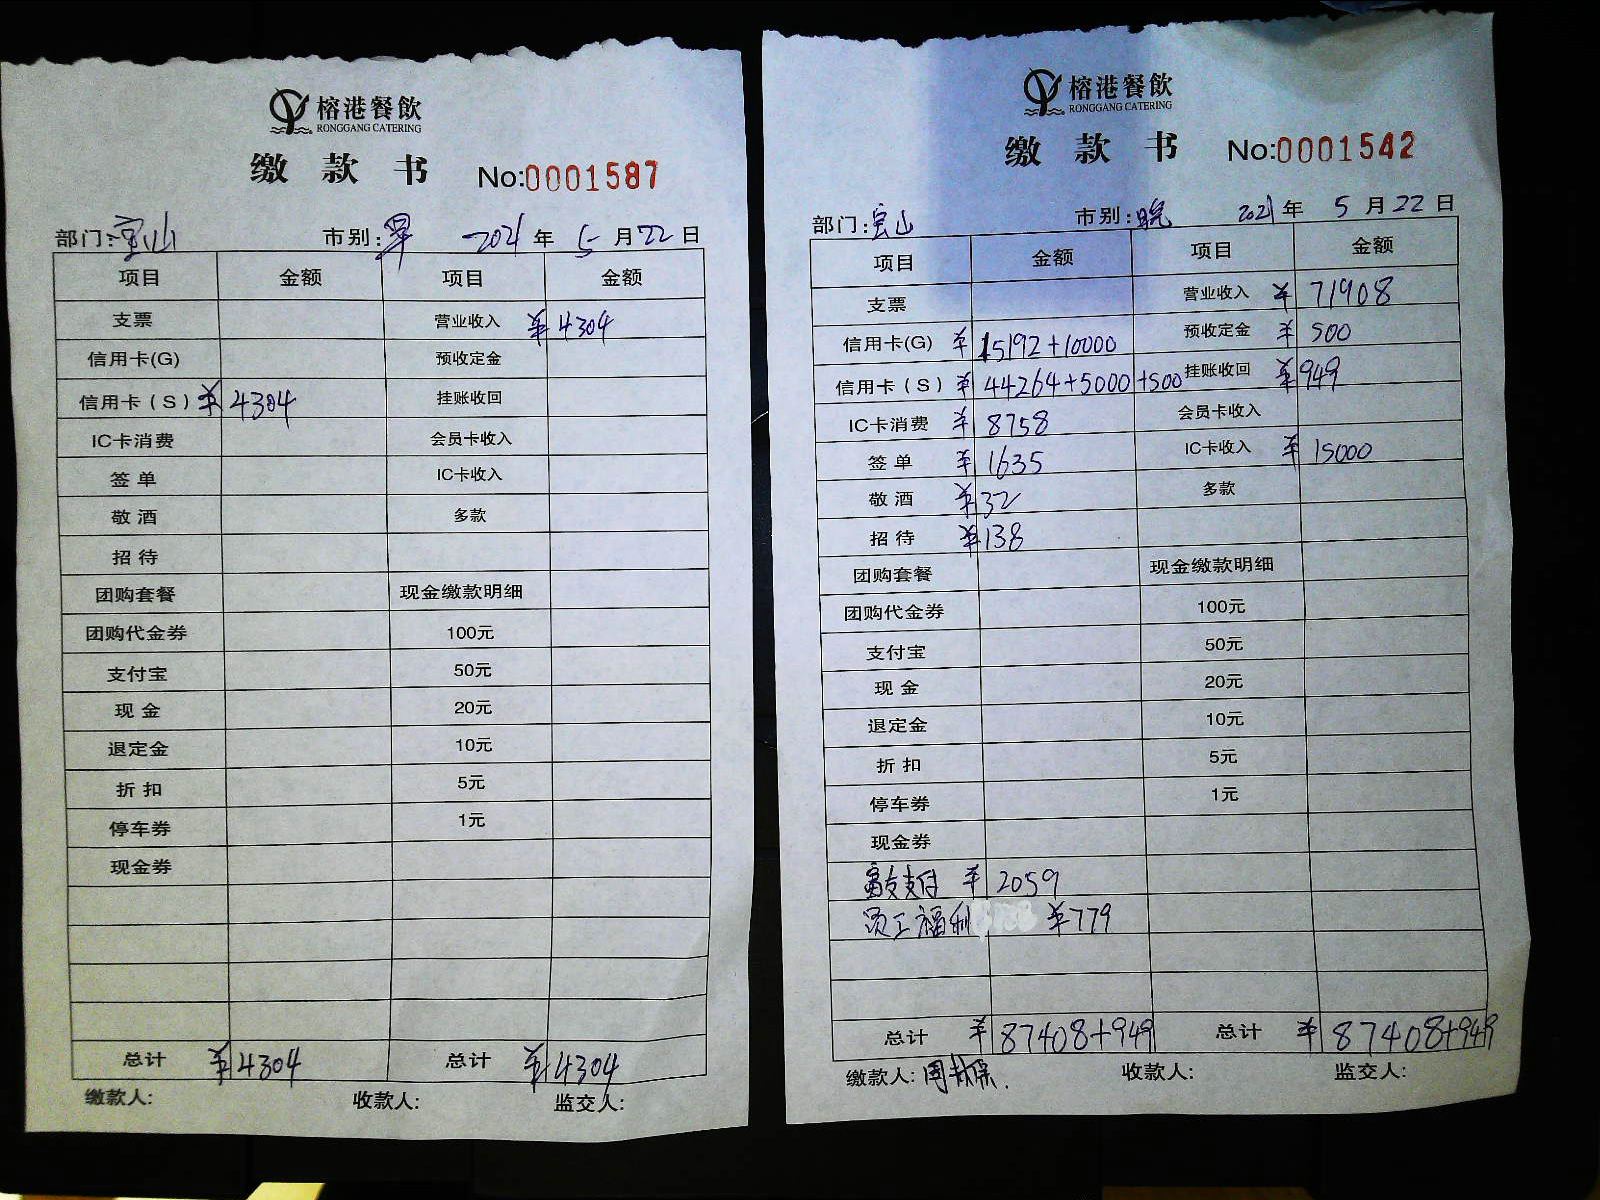 榕港餐飲
RONGGANG CATERING
缴款书 No:0001587
部门:宝山 市别:早 2021年5月22日
项目 金额 项目 金额
支票 营业收入 ¥4304
信用卡(G) 预收定金
信用卡(S) ¥4304 挂账收回
IC卡消费 会员卡收入
签单 IC卡收入
敬酒 多款
招待
团购套餐 现金缴款明细
团购代金券 100元
支付宝 50元
现金 20元
退定金 10元
折扣 5元
停车券 1元
现金券
总计 ¥4304 总计 ¥4304
缴款人: 收款人: 监交人:
榕港餐飲
RONGGANG CATERING
缴款书 No:0001542
部门:宝山 市别:晚 2021年5月22日
项目 金额 项目 金额
支票 营业收入 ¥71908
信用卡(G) ¥15192+10000 预收定金 ¥500
信用卡(S) ¥44264+5000+500 挂账收回 ¥949
IC卡消费 ¥8758 会员卡收入
签单 ¥1635 IC卡收入 ¥15000
敬酒 ¥32 多款
招待 ¥138
团购套餐 现金缴款明细
团购代金券 100元
支付宝 50元
现金 20元
退定金 10元
折扣 5元
停车券 1元
现金券
支付 ¥2059
员工福利 ¥779
总计 ¥87408+949 总计 ¥87408+949
缴款人: 收款人: 监交人: